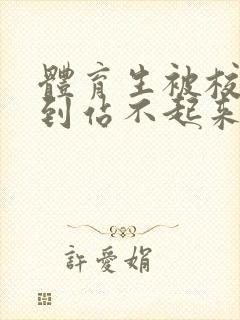 體育生被校
到佔不起來
許愛娟